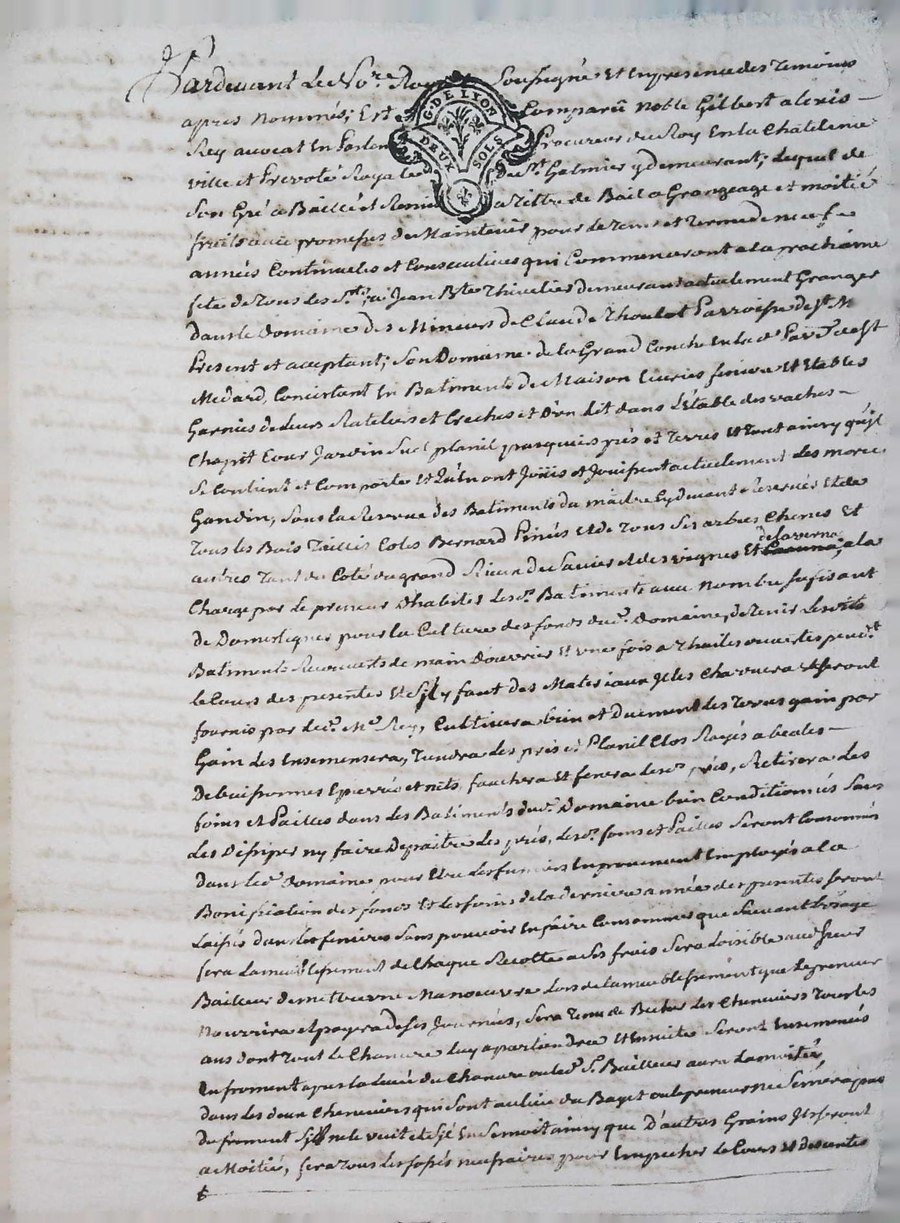 Pardevant Le No.re Roy Soussigné et En presence des temoins
apres nommés; Est Comparû noble Gilbert alexis
G. DE LYON
DEUX SOLS
Rey avocat En Parlem Procureur du Roy En la Châtelenie
ville et Prevoté Royale de St. Galmier y demeurant; Lequel de
Son Gré a Baillé et Remis a titre de Bail a Grangeage et moitié
fruits avec promesses de Maintenir pour le tems et terme de neuf
années Continuelles et Consecutives qui Commenceront a la prochaine
fete de tous les Sts. a Jean Bte. Thivelier demeurant actuellement Granger
dans le Domaine des Mineurs de Claude Thoulot Parroisse de St. M
Present et acceptant; Son Domaine de la Grand Conche En la de. Parr de St
Medard, Concistant En Batiments de Maison Ecuries feniere Et Etables
Garnies de Leurs Rateliers et Creches et D'un Lit dans L'Etable des vaches
Chapit Cour Jardin Suel planil pasquiers prés et terres Et tout ainsy qu'il
Se Contient et Comporte Et qu'en ont Joüis et Jouissent actuellement les
Gandin, Sous la Reserve des Batiments du maitre Cy devant Reservés Et de
tous les Bois Taillis Bernard Pinés Et de tous Ses arbres Chenes Et
autres tant du Coté du grand Rieu du et des vignes Et de la verne, a la
Charge par le preneur D'habiter Lesd. Batiments avec nombre sufisant
de Domestiques pour la Culture des fonds dud. Domaine, de tenir Lesdits
Batiments Recouverts de main D'ouvrier Et une fois a thuiles ouvertes pend.t
le Cours des presentes Et S'il y faut des Materiaux Ils les Charriera Et Seront
fournis par led. Me. Rey, Cultivera bien et Duement les terres gain par
Gain Les Ensemensera, tiendra les prés et Planil Clos Rasés a beales
De buissonnes Epierrés et nets, fauchera Et fenera lesd. prés, Retirera les
foins et Pailles dans les Batiments dud. Domaine bien Conditionnés Sans
les Dissiper ny faire Depaitre les prés, lesd. foins et Pailles Seront Consommés
dans led. Domaine pour Etre les fumiers Employés a la
Bonification des fonds Et les foins de la derniere année des presentes Seront
Laissés dans les fenieres Sans pouvoir En faire Consommer que Suivant L'usage
fera Lameublissement de Chaque Recolte a Ses frais Sera Loisible aud. Sieur
Bailleur de mettre une Manoeuvre Lors de Lameublissement que Le preneur
nourrira et payera de Ses Journées, Sera tenu de Becher les Cheneviers tous les
ans dont tout le Chanvre Luy apartiendra Et Ensuite Seront Ensemencés
En froment apres la Levée du Chanvre ou led. Sr. Bailleur aura La moitié,
dans les deux Cheneviers qui Sont au lieu du Baget ou le preneur ne Semera pas
de froment S'il ne le veut Et s'il En Semoit ainsy que D'autres Grains Ils Seront
a Moitié, fera tous les fossés necessaires pour Empecher le Cours Et descentes